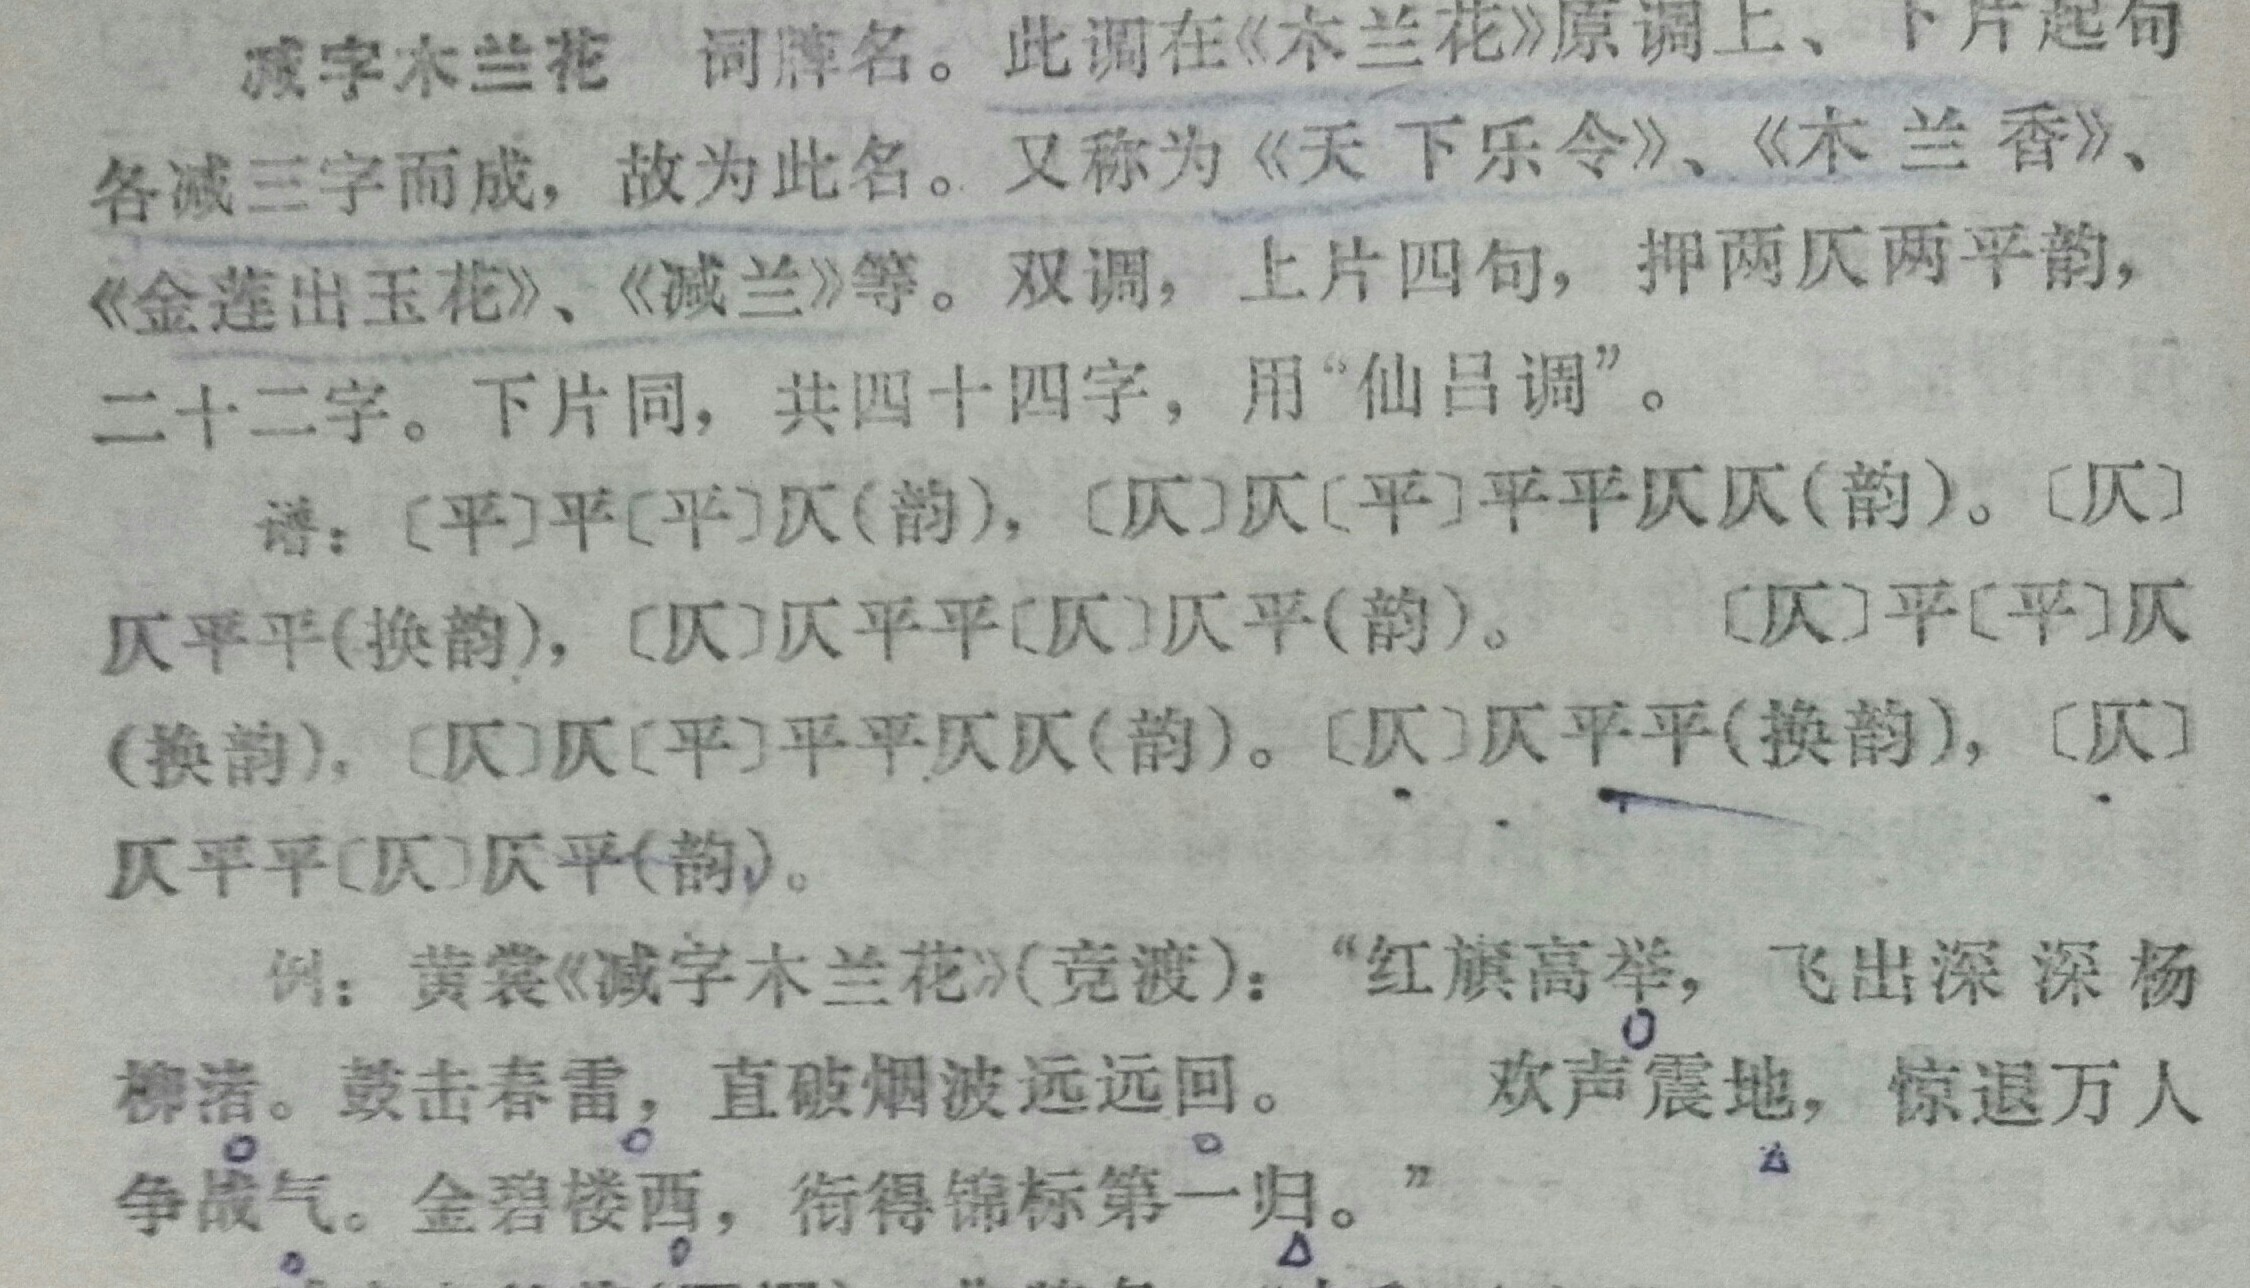 减字木兰花　词牌名。此调在《木兰花》原调上、下片起句
各减三字而成，故为此名。又称为《天下乐令》、《木兰香》、
《金莲出玉花》、《减兰》等。双调，上片四句，押两仄两平韵，
二十二字。下片同，共四十四字，用“仙吕调”。
谱：〔平〕平〔平〕仄（韵），〔仄〕仄〔平〕平平仄仄（韵）。〔仄〕
仄平平（换韵），〔仄〕仄平平〔仄〕仄平（韵）。　　〔仄〕平〔平〕仄
（换韵），〔仄〕仄〔平〕平平仄仄（韵）。〔仄〕仄平平（换韵），〔仄〕
仄平平〔仄〕仄平（韵）。
例：黄裳《减字木兰花》（竞渡）：“红旗高举，飞出深深杨
柳渚。鼓击春雷，直破烟波远远回。　　欢声震地，惊退万人
争战气。金碧楼西，衔得锦标第一归。”